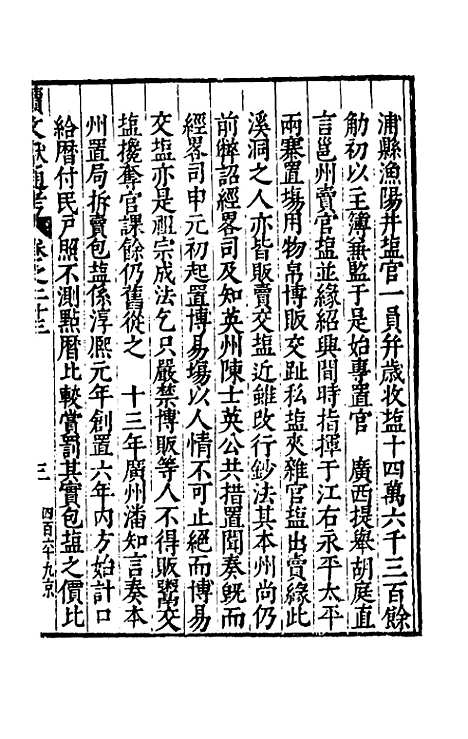 浦縣漁陽井塩官一員幷歲收塩十四萬六千三百餘
觔初以主簿兼監于是始專置官　廣西提舉胡庭直
言邕州賣官塩並緣紹興間時指揮于江右永平太平
兩寨置塲用物帛博販交趾私塩夾雜官塩出賣緣此
溪洞之人亦皆販賣交塩近雖改行鈔法其本州尚仍
前弊詔經畧司及知英州陳士英公共措置聞奏旣而
經畧司申元初起置博易塲以人情不可止絕而博易
交塩亦是祖宗成法乞只嚴禁博販等人不得販鬻交
塩攙奪官課餘仍舊從之　十三年廣州潘知言奏本
州置局拆賣包塩係淳熈元年創置六年內方始計口
給曆付民戸照不測點曆比較賞罰其實包塩之價比
續文獻通考　卷之二十三　三　四百六十九京